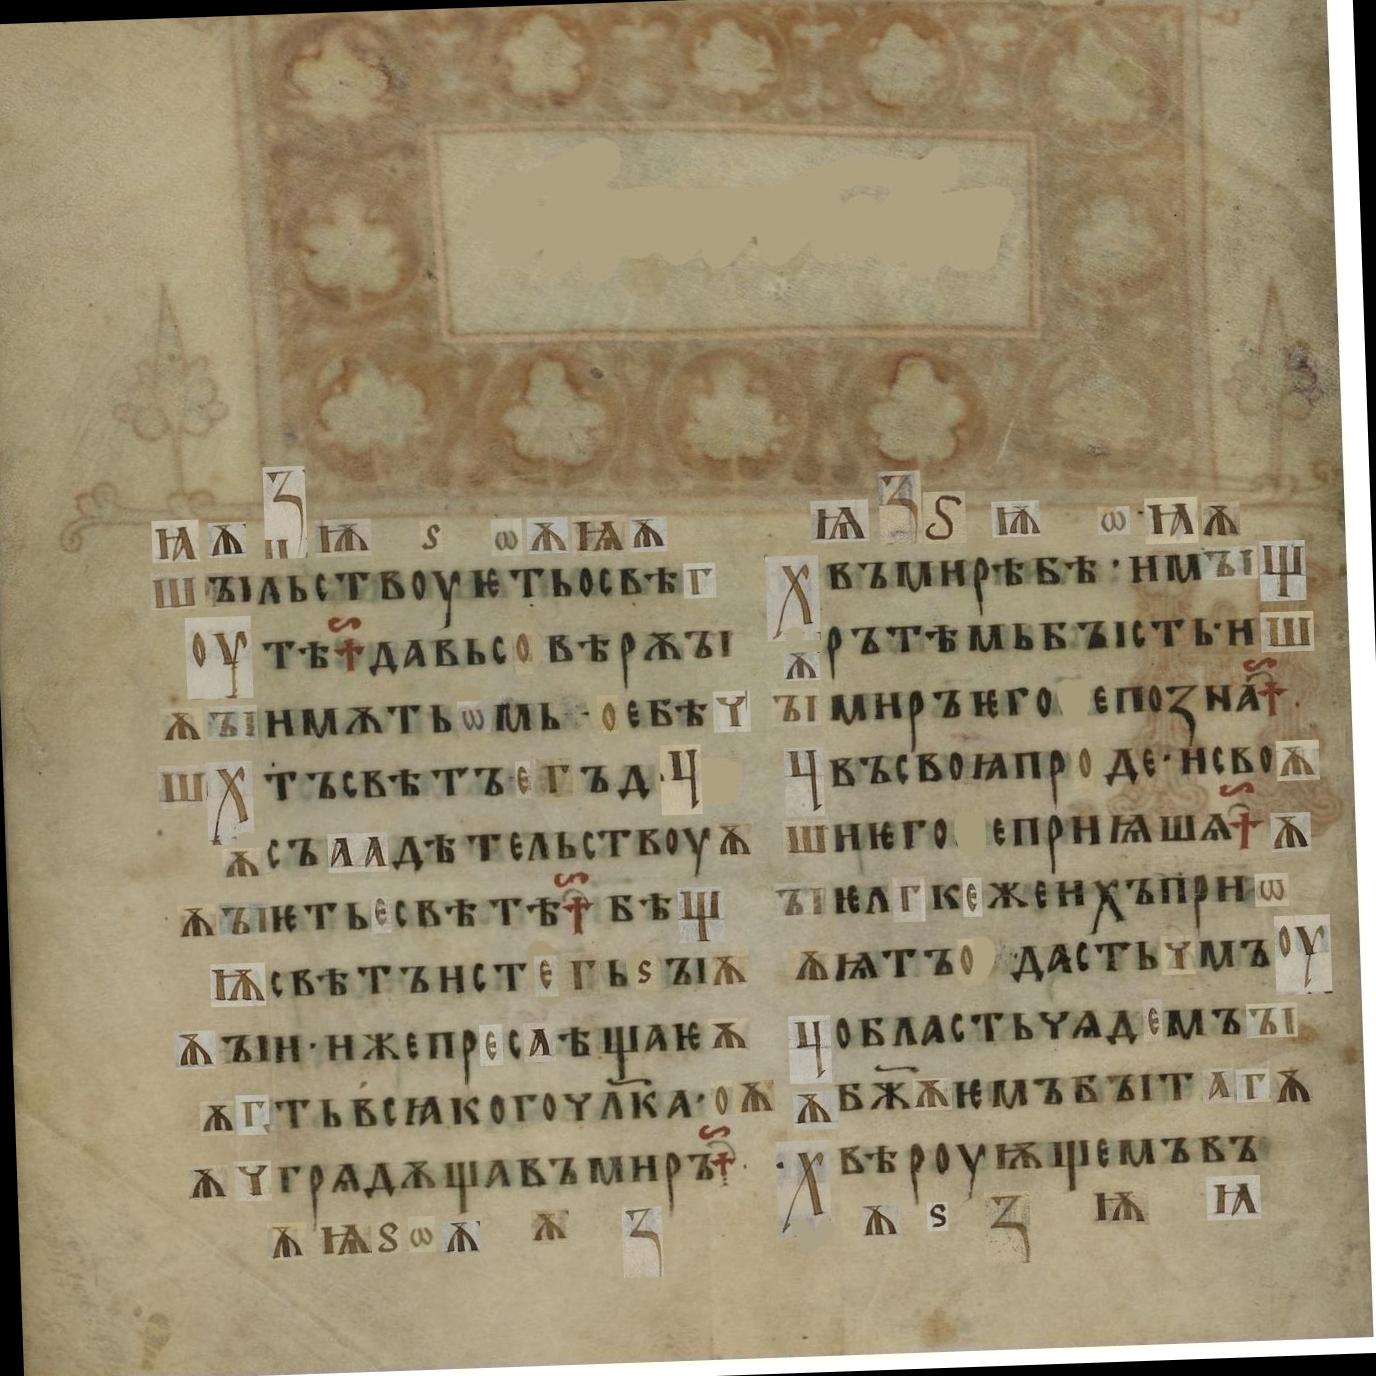 ꙗ ѫ З ѭ ѕ ѡ ѫ ꙗ ѫ
ш ꙑльствоуѥтьосвѣ г
оу тѣ давьсо вѣрѫꙑ
ѫ ꙑ имѫть ѡ мь · о ебѣ ү
ш х тъсвѣтъ е г ъд · ч
ѫ съ а а дѣтельствоу ѫ
ѫ ꙑ ѥть е свѣтѣ бѣ щ
ѭ свѣтъист е г ь ѕ ꙑ ѫ
ѫ ꙑи · ижепр е с а ѣщаѥ ѫ
ѫ г тьвсꙗкогоүлка · о ѫ
ѫ ү грѧдѫщавъмиръ
ѫ ѩ ѕ ѡ ѫ ѫ З
ѩ З ѕ ѭ ѡ · ꙗ ѫ
х въмирѣбѣ · имꙑ щ
ѫ рътѣмьбꙑсть · и ш
ꙑ миръѥго епозна
ч въсвоꙗпр о де · исво ѫ
ш иѥго еприѩшѧ ѫ
ꙑ ѥл г к е женхъпри ѡ
ѫ ѩтъ о дасть ү мъ оу
ч областьүѧд е мъ ꙑ
ѫ бж ѫ ѥмъбꙑт а г ѫ
· х вѣроуѭщемъвъ
ѫ ѕ З ѭ ꙗ